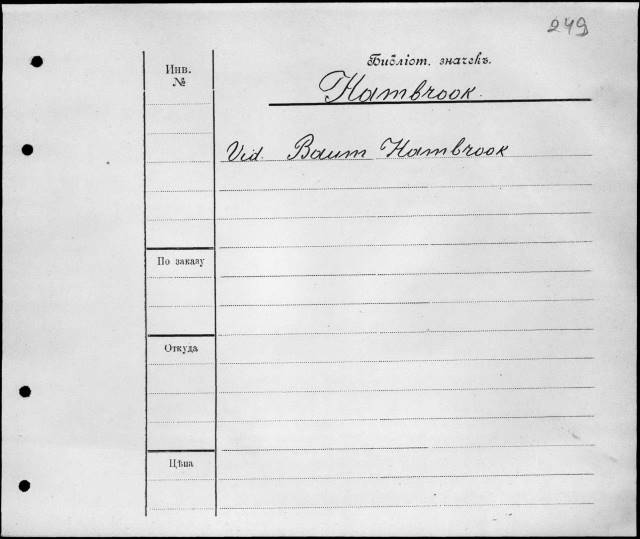 249
Библіот. значекъ.
Инв.
№
Hambrook.
Vid. Baum Hambrook
По заказу
Откуда
Цѣна